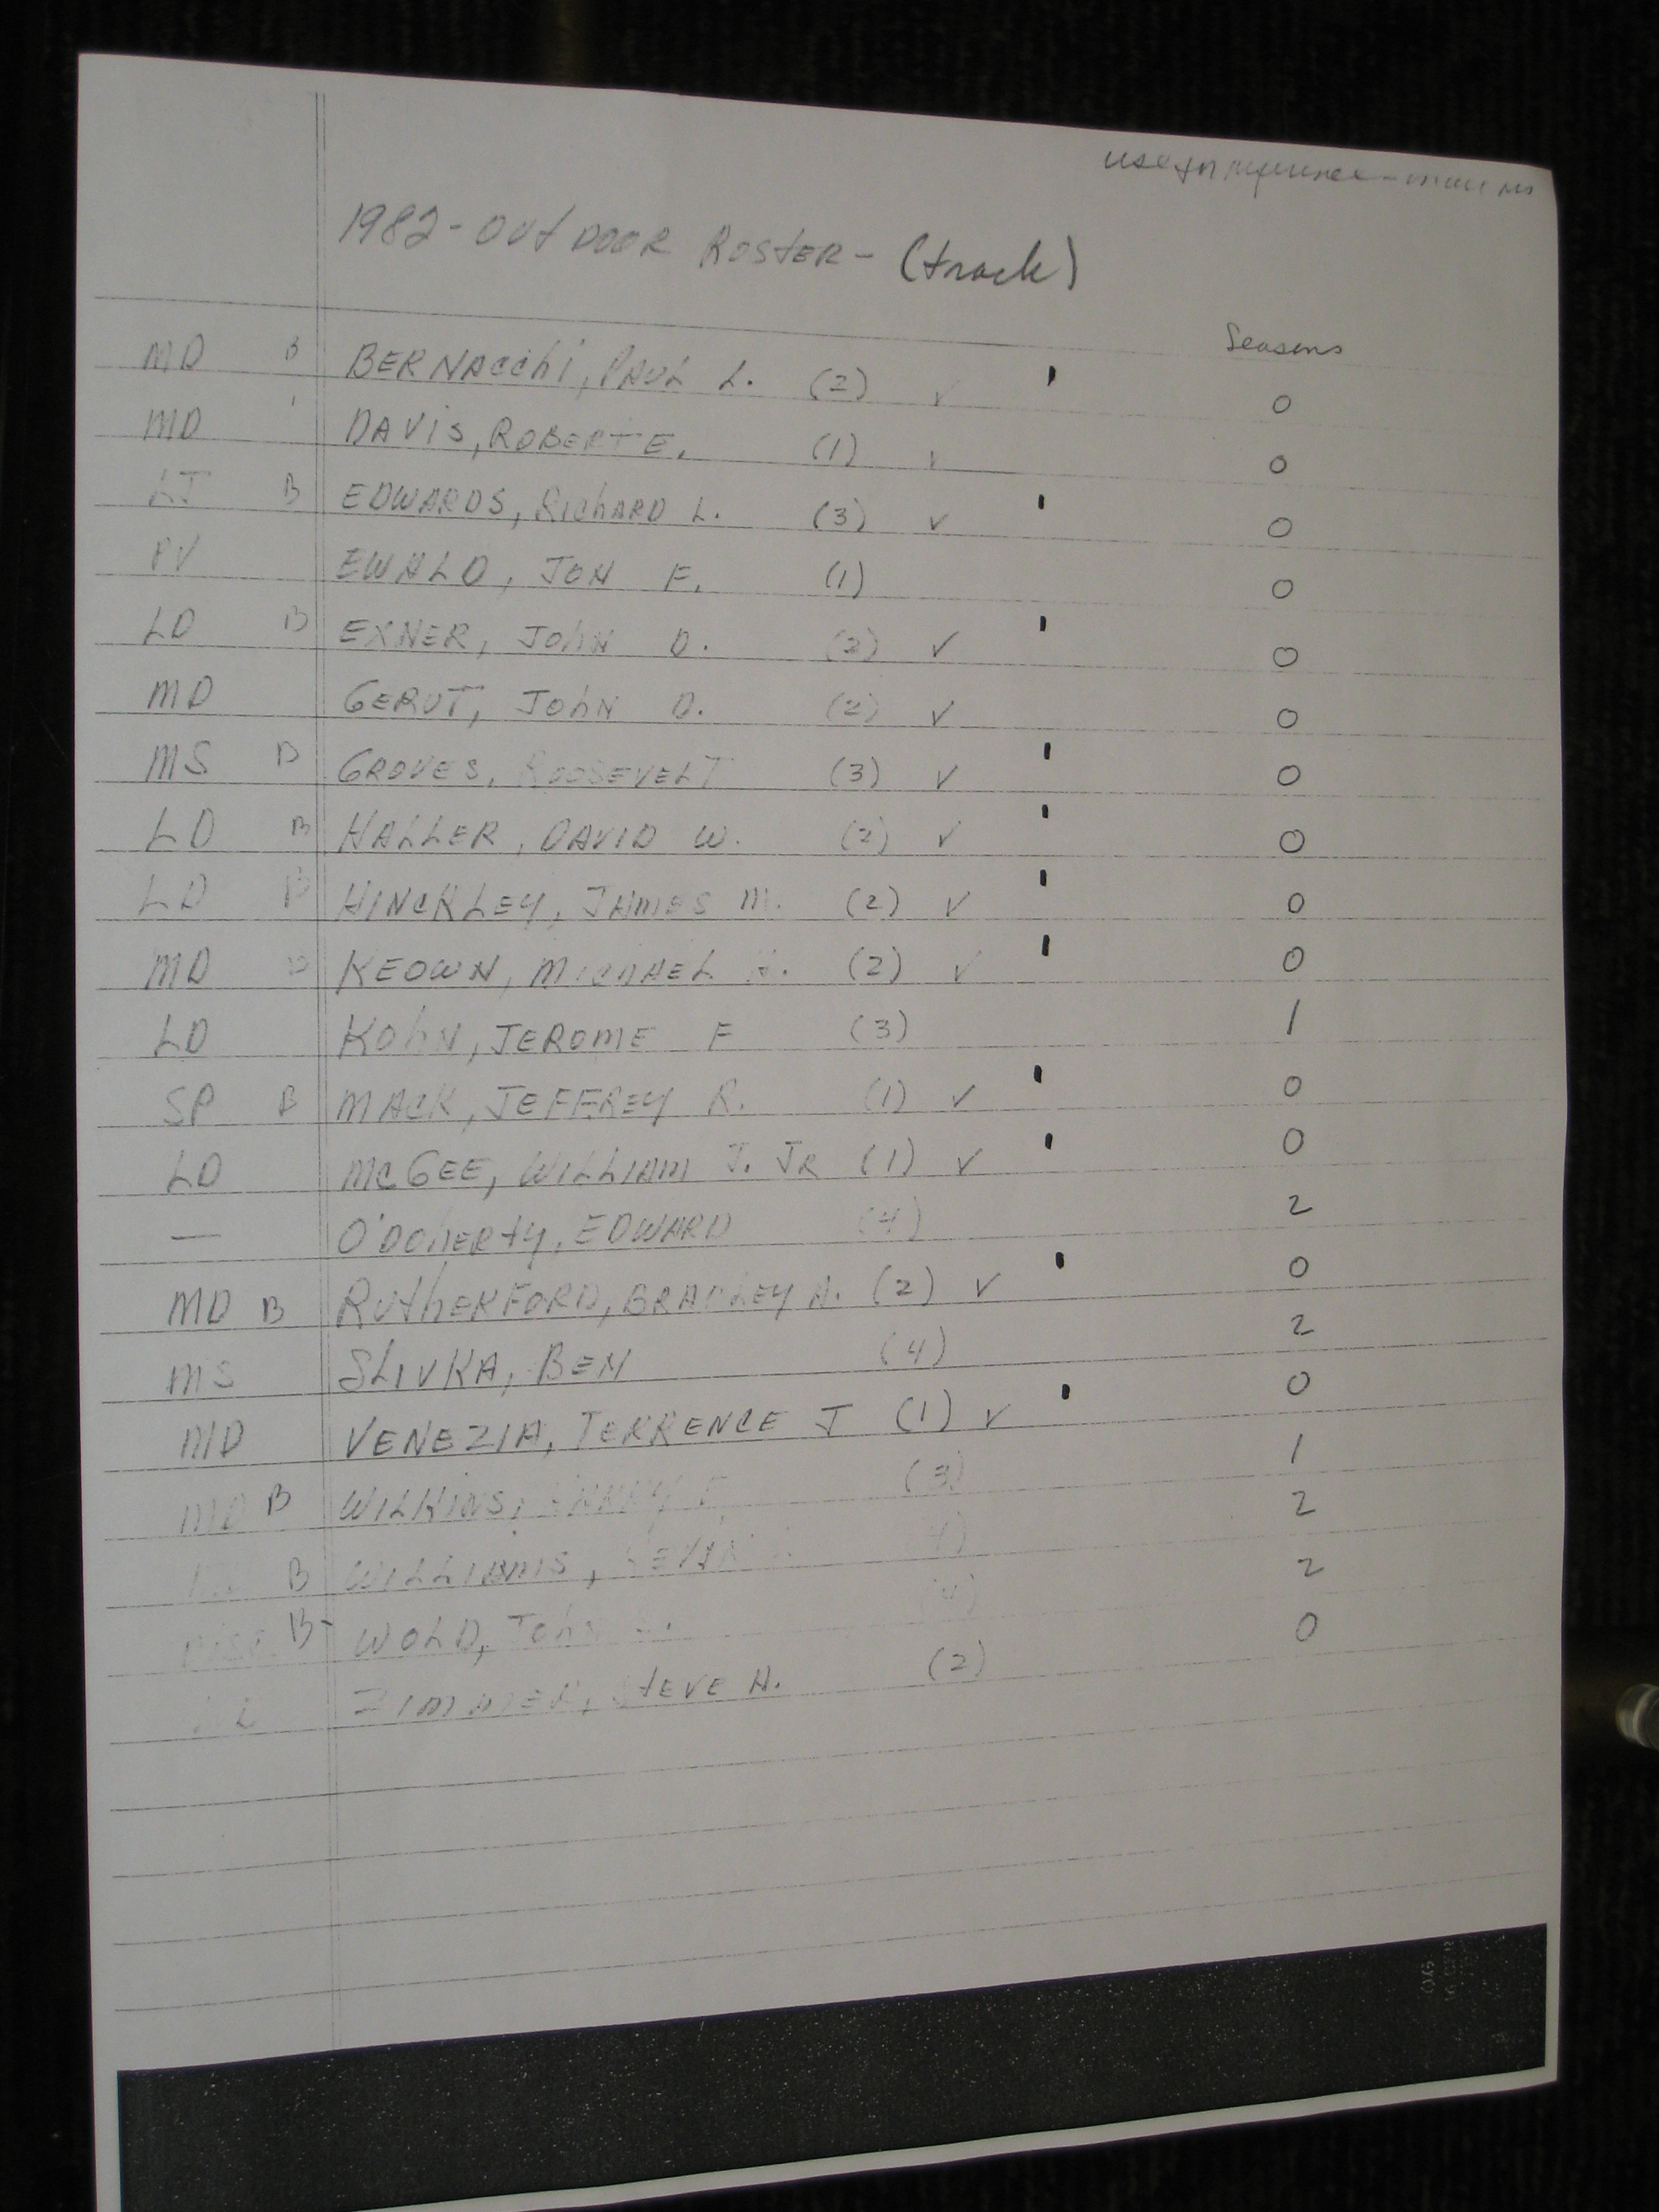 use for reference
1982 - OUTDOOR ROSTER - (track)
Seasons
MD B BERNACChi, PAUL L. (2) ✓ 0
MD DAViS, ROBERT E. (1) ✓ 0
LJ B EDWARDS, RichARD L. (3) ✓ 0
PV EWALD, JON F. (1) 0
LD B EXNER, JohN D. (2) ✓ 0
MD GERUT, JohN D. (2) ✓ 0
MS B GROVES, ROOSEVELT (3) ✓ 0
LD B HALLER, DAVID W. (2) ✓ 0
LD B HINCKLEY, JAMES M. (2) ✓ 0
MD B KEOWN, MichAEL (2) ✓ 0
LD KOhN, JEROME F (3) 1
SP B MACK, JEFFREY R. (1) ✓ 0
LD McGEE, WILLIAM J. JR (1) ✓ 0
— O'DOhERty, EDWARD (4) 2
MD B RUthERFORD, BRADLEY A. (2) ✓ 0
MS SLIVKA, BEN (4) 2
MD VENEZIA, TERRENCE J (1) ✓ 0
MD B WILKINS, (3) 1
B WILLIAMS, KEVIN (4) 2
B WOLD, John (4) 2
ZIMMER, StEVE A. (2) 0